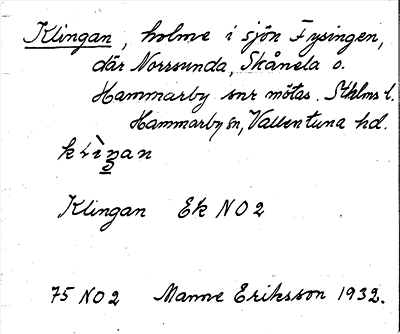 Klingan, holme i sjön Fysingen,
där Norrsunda, Skånela o.
Hammarby snr mötas. Sthlms l.
Hammarby sn, Vallentuna hd.
Klingan Ek NO2
75 NO2 Manne Eriksson 1932.